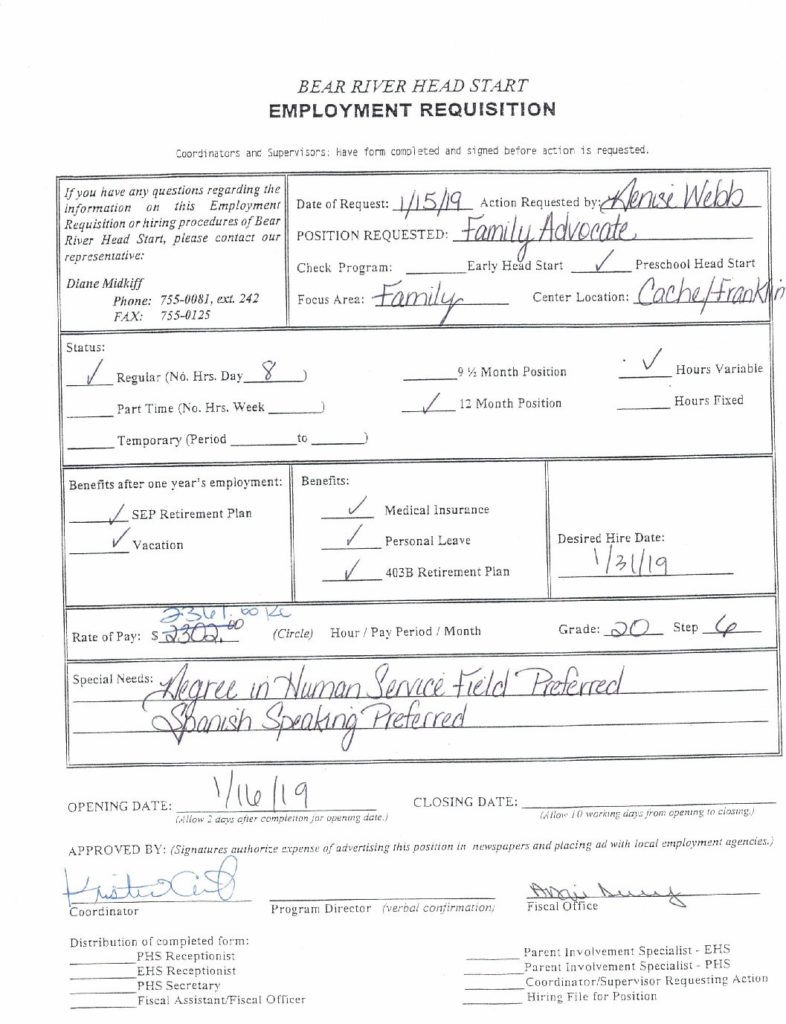 BEAR RIVER HEAD START
EMPLOYMENT REQUISITION
Coordinators and Supervisors: have form completed and signed before action is requested.
If you have any questions regarding the
information on this Employment
Requisition or hiring procedures of Bear
River Head Start, please contact our
representative:
Diane Midkiff
Phone: 755-0081, ext. 242
FAX: 755-0125
Date of Request: 1/15/19 Action Requested by: Denise Webb
POSITION REQUESTED: Family Advocate
Check Program: ______ Early Head Start ✓ Preschool Head Start
Focus Area: Family Center Location: Cache/Franklin
Status:
✓ Regular (No. Hrs. Day 8 ) ______ 9 ½ Month Position ✓ Hours Variable
______ Part Time (No. Hrs. Week ______) ✓ 12 Month Position ______ Hours Fixed
______ Temporary (Period ______ to ______)
Benefits after one year's employment:
✓ SEP Retirement Plan
✓ Vacation
Benefits:
✓ Medical Insurance
✓ Personal Leave
✓ 403B Retirement Plan
Desired Hire Date:
1/31/19
2361.00 KC
Rate of Pay: $ 2302.00 (Circle) Hour / Pay Period / Month Grade: 20 Step 6
Special Needs: Degree in Human Service Field Preferred
Spanish Speaking Preferred
OPENING DATE: 1/16/19 CLOSING DATE: ______
(Allow 2 days after completion for opening date.) (Allow 10 working days from opening to closing.)
APPROVED BY: (Signatures authorize expense of advertising this position in newspapers and placing ad with local employment agencies.)
Coordinator Program Director (verbal confirmation) Fiscal Office
Distribution of completed form:
______ PHS Receptionist
______ EHS Receptionist
______ PHS Secretary
______ Fiscal Assistant/Fiscal Officer
______ Parent Involvement Specialist - EHS
______ Parent Involvement Specialist - PHS
______ Coordinator/Supervisor Requesting Action
______ Hiring File for Position